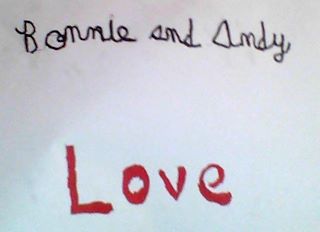 Bonnie and Andy
Love